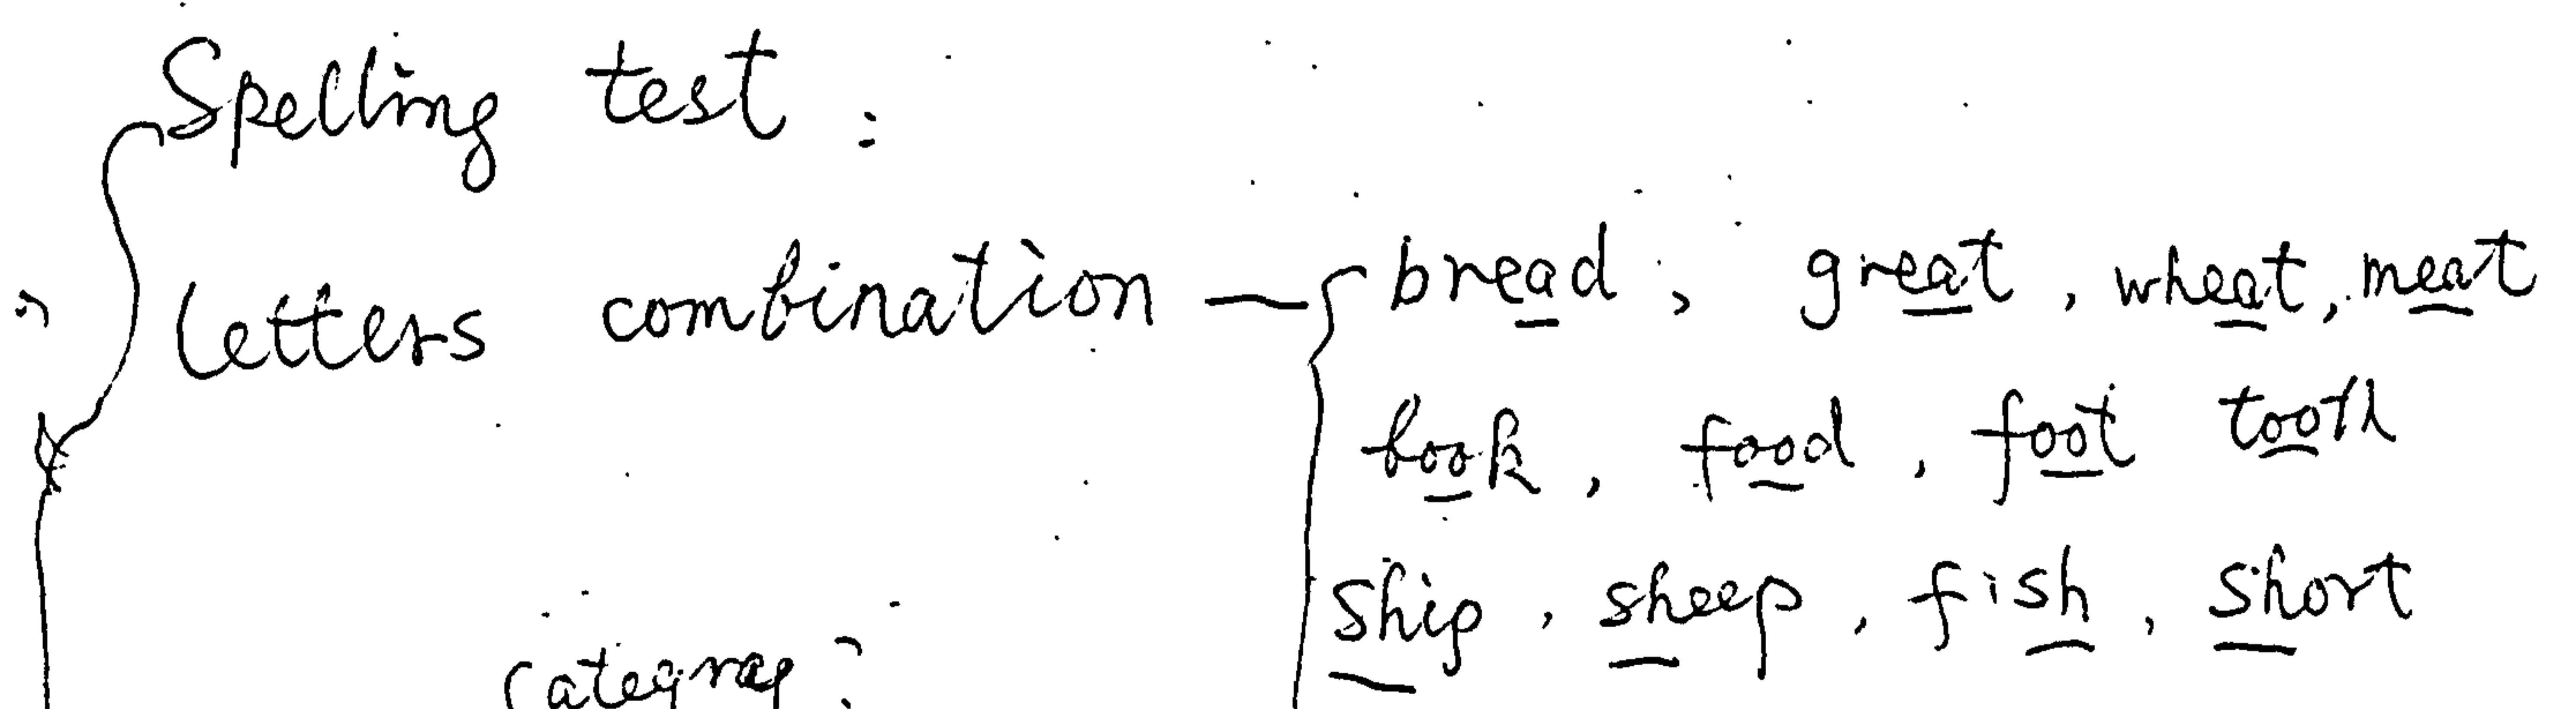 Spelling test :
letters combination — bread, great, wheat, meat
book, food, foot tooth
ship, sheep, fish, short